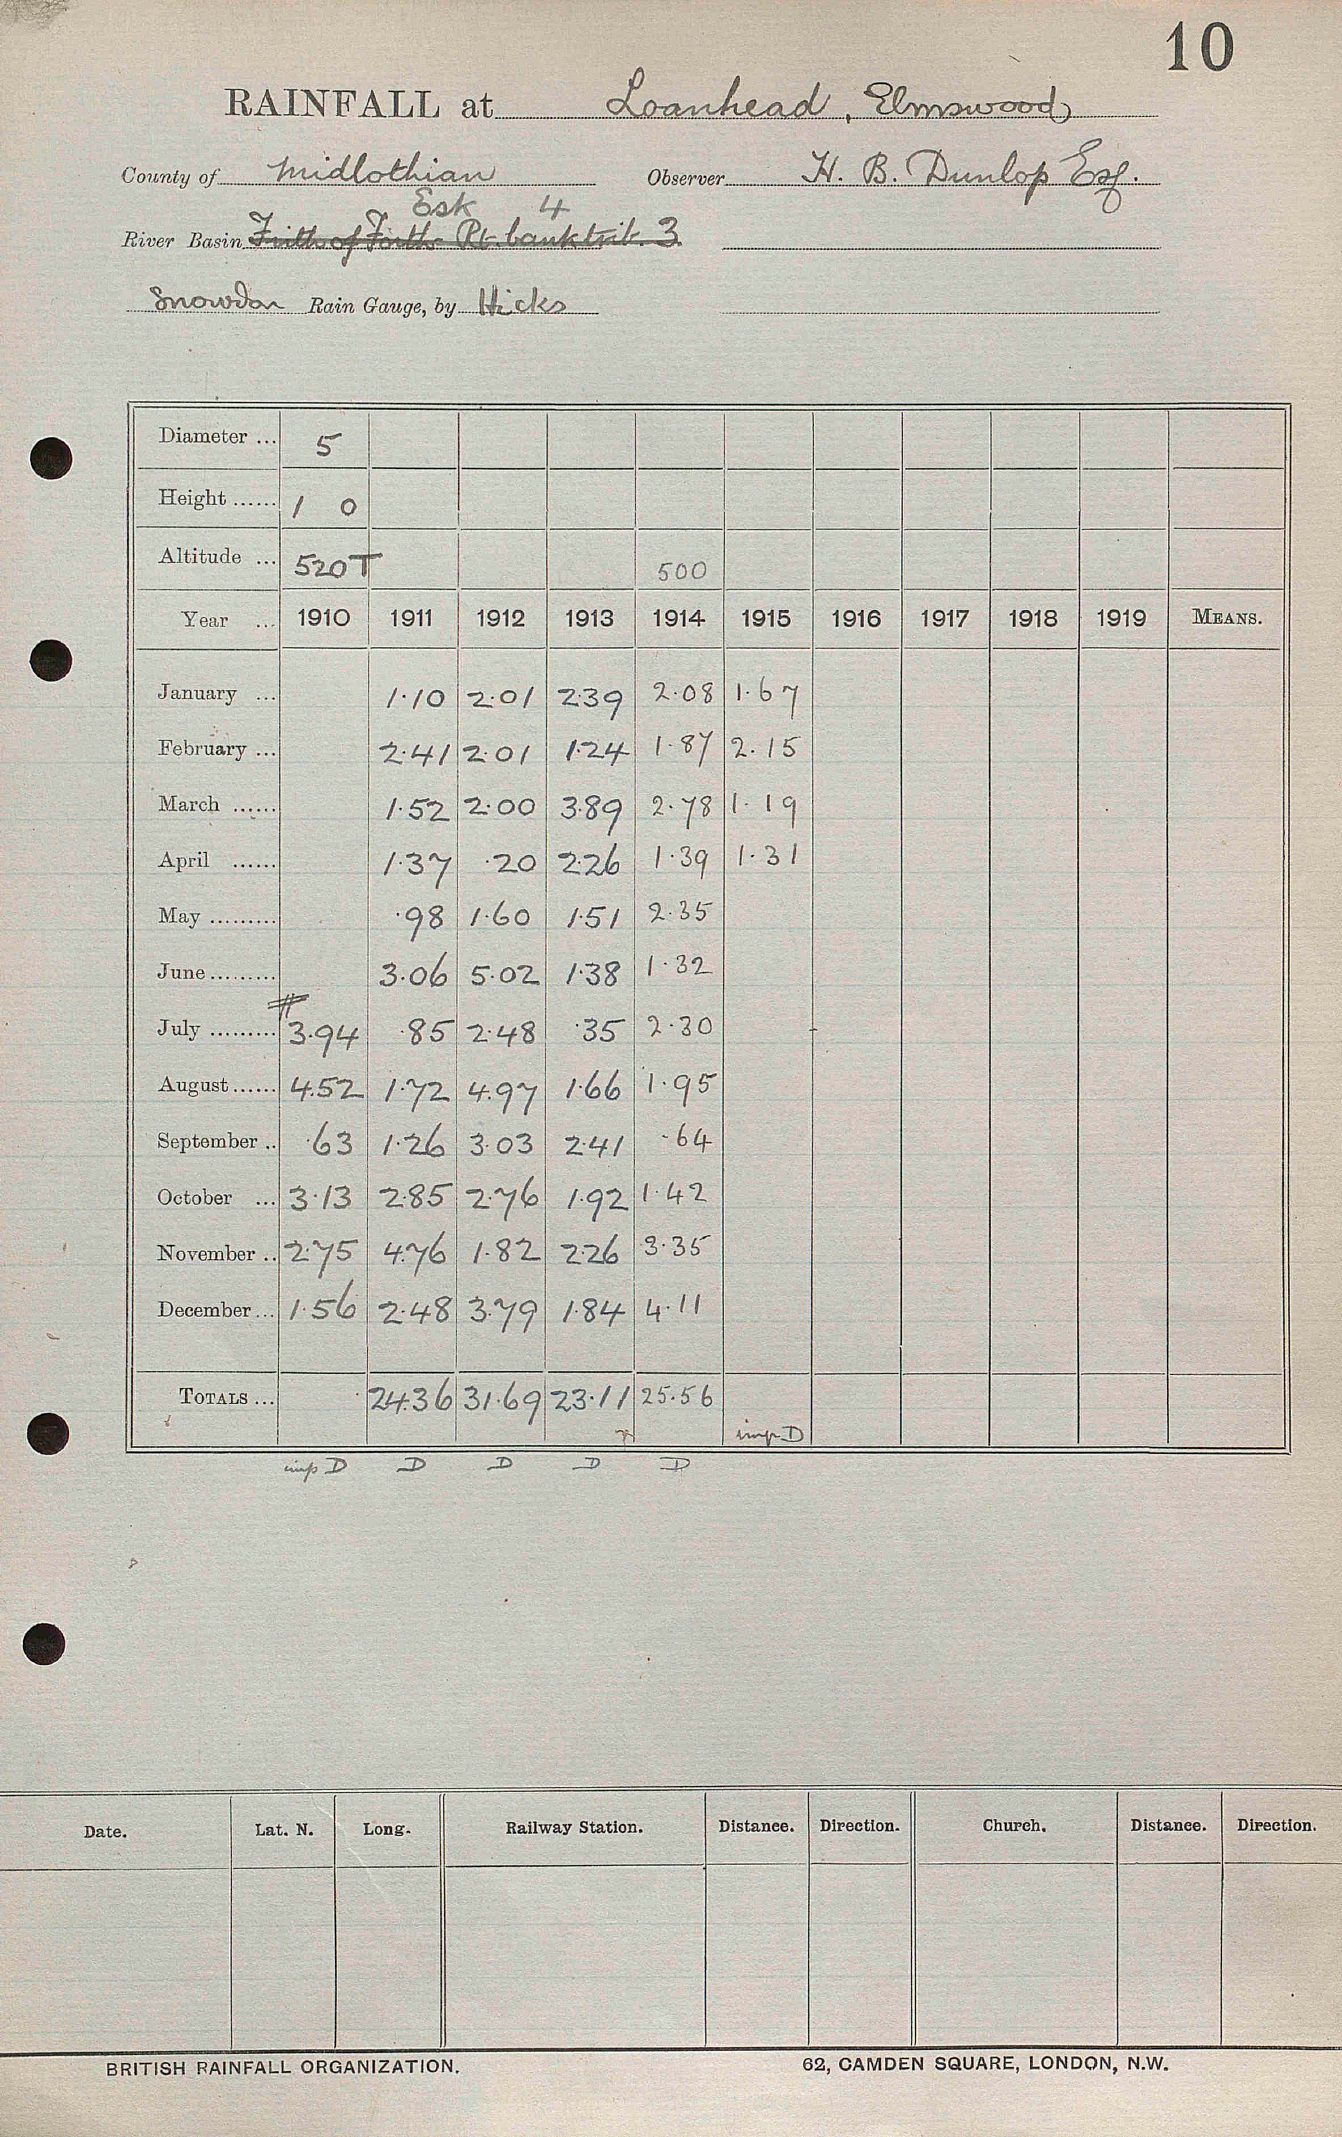 10
RAINFALL at Loanhead, Elmswood
County of Midlothian Observer H. B. Dunlop Esq.
Esk 4
River Basin Frith of Forth Rt. bank trib. 3
Snowdon Rain Gauge, by Hicks
Diameter ... 5
Height ...... 1 0
Altitude ... 520T 500
Year ... 1910 1911 1912 1913 1914 1915 1916 1917 1918 1919 MEANS.
January ... 1·10 2·01 2·39 2·08 1·67
February ... 2·41 2·01 1·24 1·87 2·15
March ...... 1·52 2·00 3·89 2·78 1·19
April ...... 1·37 ·20 2·26 1·39 1·31
May ......... ·98 1·60 1·51 2·35
June ......... 3·06 5·02 1·38 1·32
July ......... 3·94 ·85 2·48 ·35 2·30
August ...... 4·52 1·72 4·97 1·66 1·95
September .. ·63 1·26 3·03 2·41 ·64
October ... 3·13 2·85 2·76 1·92 1·42
November .. 2·75 4·76 1·82 2·26 3·35
December ... 1·56 2·48 3·79 1·84 4·11
TOTALS ... 24·36 31·69 23·11 25·56
imp D
imp D D D D D
Date. Lat. N. Long. Railway Station. Distance. Direction. Church. Distance. Direction.
BRITISH RAINFALL ORGANIZATION. 62, CAMDEN SQUARE, LONDON, N.W.